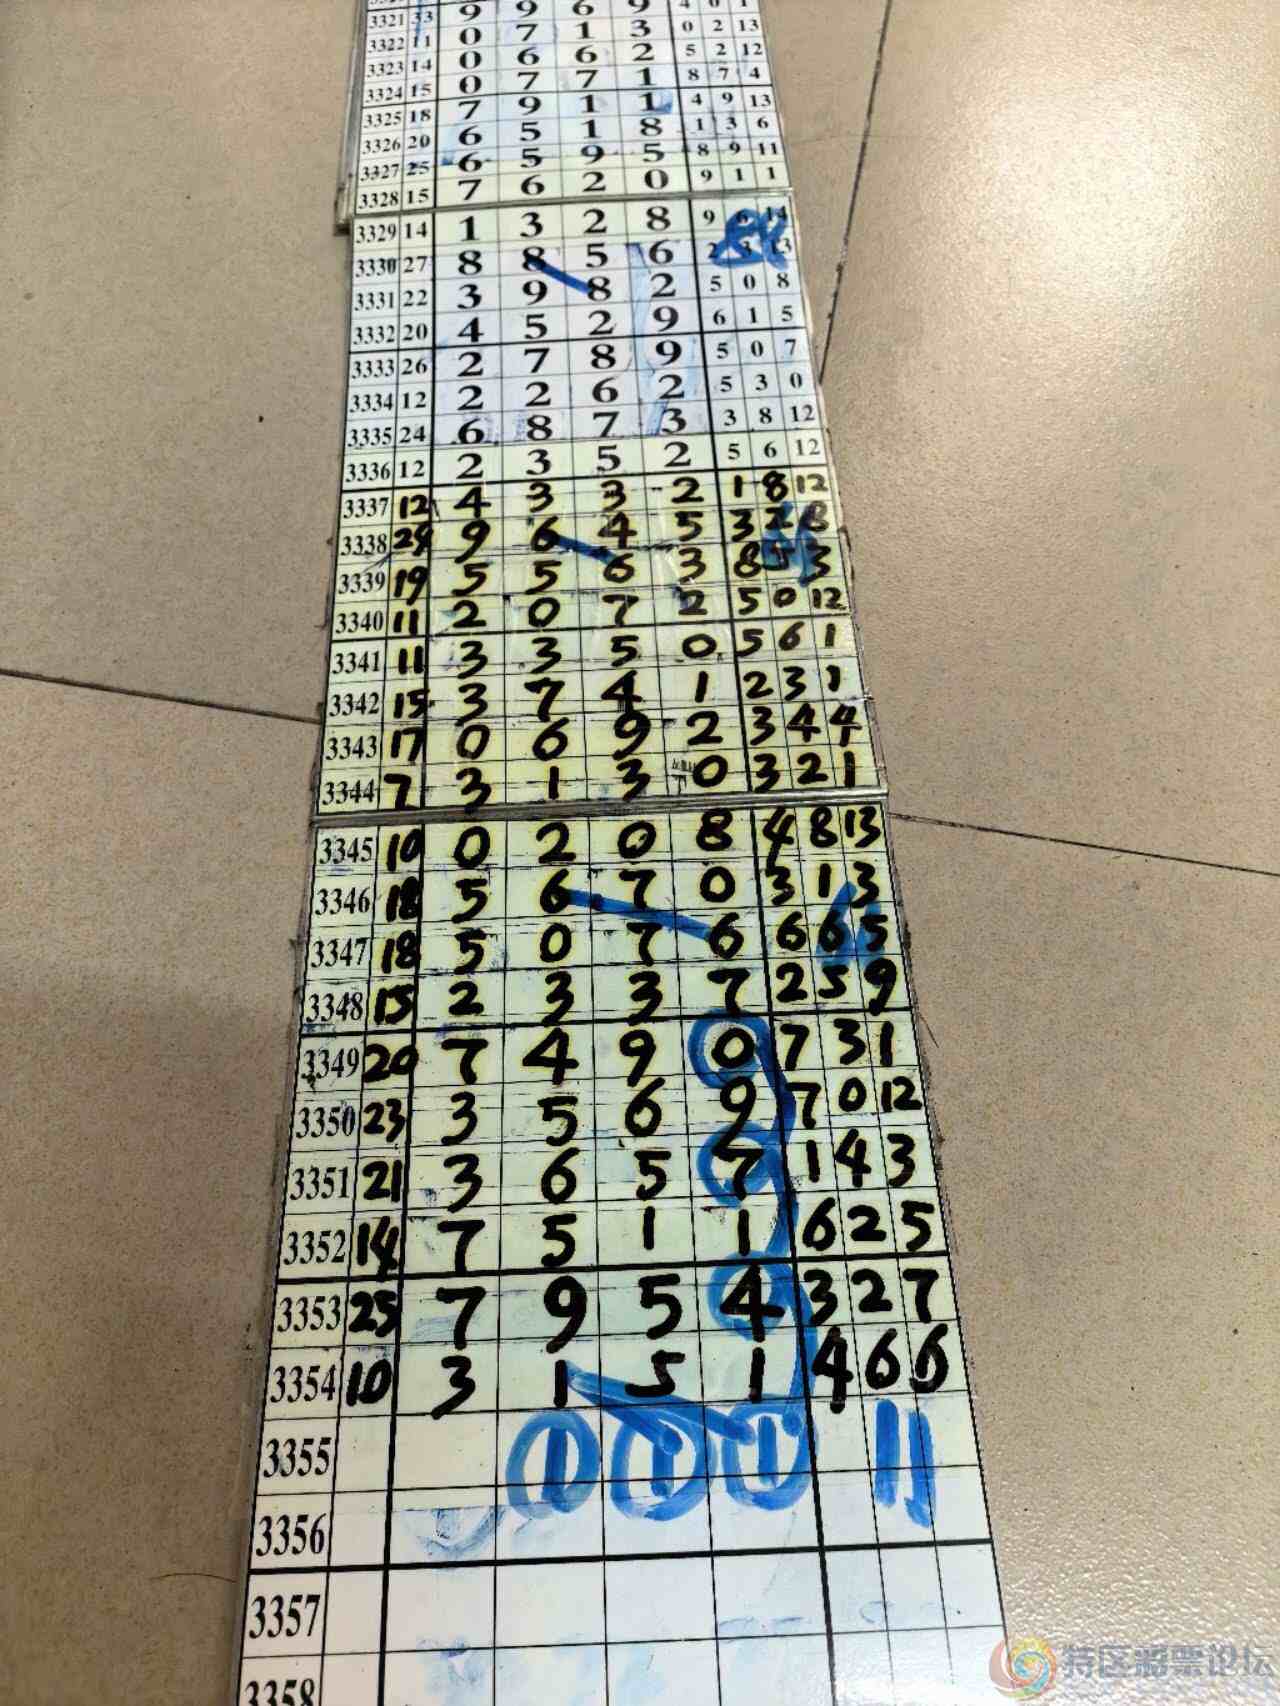 3321 33 9 9 6 9 4 0 1
3322 11 0 7 1 3 0 2 13
3323 14 0 6 6 2 5 2 12
3324 15 0 7 7 1 8 7 4
3325 18 7 9 1 1 4 9 13
3326 20 6 5 1 8 1 3 6
3327 25 6 5 9 5 8 9 11
3328 15 7 6 2 0 9 1 1
3329 14 1 3 2 8 9 6 14
3330 27 8 8 5 6 2 3 13
3331 22 3 9 8 2 5 0 8
3332 20 4 5 2 9 6 1 5
3333 26 2 7 8 9 5 0 7
3334 12 2 2 6 2 5 3 0
3335 24 6 8 7 3 3 8 12
3336 12 2 3 5 2 5 6 12
3337 12 4 3 3 2 1 8 12
3338 24 9 6 4 5 3 2 8
3339 19 5 5 6 3 8 5 3
3340 11 2 0 7 2 5 0 12
3341 11 3 3 5 0 5 6 1
3342 15 3 7 4 1 2 3 1
3343 17 0 6 9 2 3 4 4
3344 7 3 1 3 0 3 2 1
3345 10 0 2 0 8 4 8 13
3346 18 5 6 7 0 3 1 3
3347 18 5 0 7 6 6 6 5
3348 15 2 3 3 7 2 5 9
3349 20 7 4 9 0 7 3 1
3350 23 3 5 6 9 7 0 12
3351 21 3 6 5 7 1 4 3
3352 14 7 5 1 1 6 2 5
3353 25 7 9 5 4 3 2 7
3354 10 3 1 5 1 4 6 6
3355 1 1 1 11
3356
3357
3358
特区彩票论坛